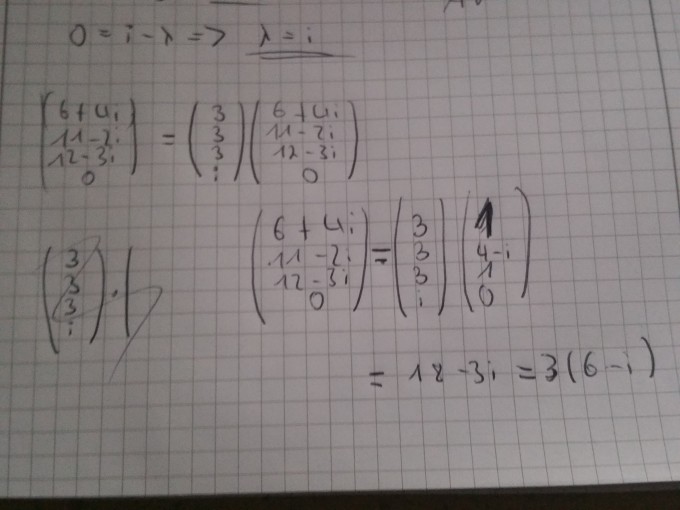 0 = i - λ => λ = i
(6 + 4i, 11 - 2i, 12 - 3i, 0) = (3, 3, 3, i) (6 + 4i, 11 - 2i, 12 - 3i, 0)
(6 + 4i, 11 - 2i, 12 - 3i, 0) = (3, 3, 3, i) (1, 4-i, 1, 0)
(3, 3, 3, i) · (
= 18 - 3i = 3(6 - i)